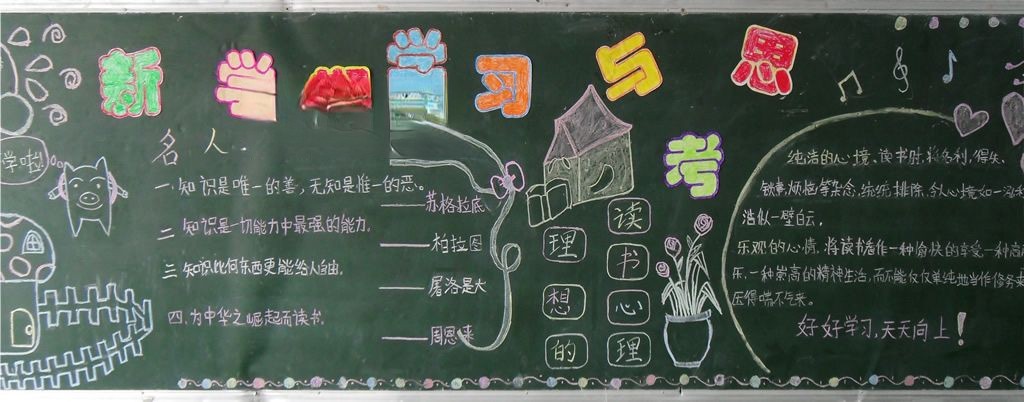 新学 学习与思
考
学啦!
名人
一.知识是唯一的善,无知是惟一的恶。
——苏格拉底
二 知识是一切能力中最强的能力。
——柏拉图
三 知识比何东西更能给人自由。
——屠洛是大
四.为中华之崛起而读书。
——周恩来
理想的
读书心理
纯洁的心境、读书时,将名利,得失、
烦恼等杂念,统统排除,令人心境如一泓
浩似一壁白云.
乐观的心情,将读书看作一种愉快的享受一种高
乐,一种崇高的精神生活,而不能仅仅单纯地当作任务来
压得喘不气来。
好好学习,天天向上!